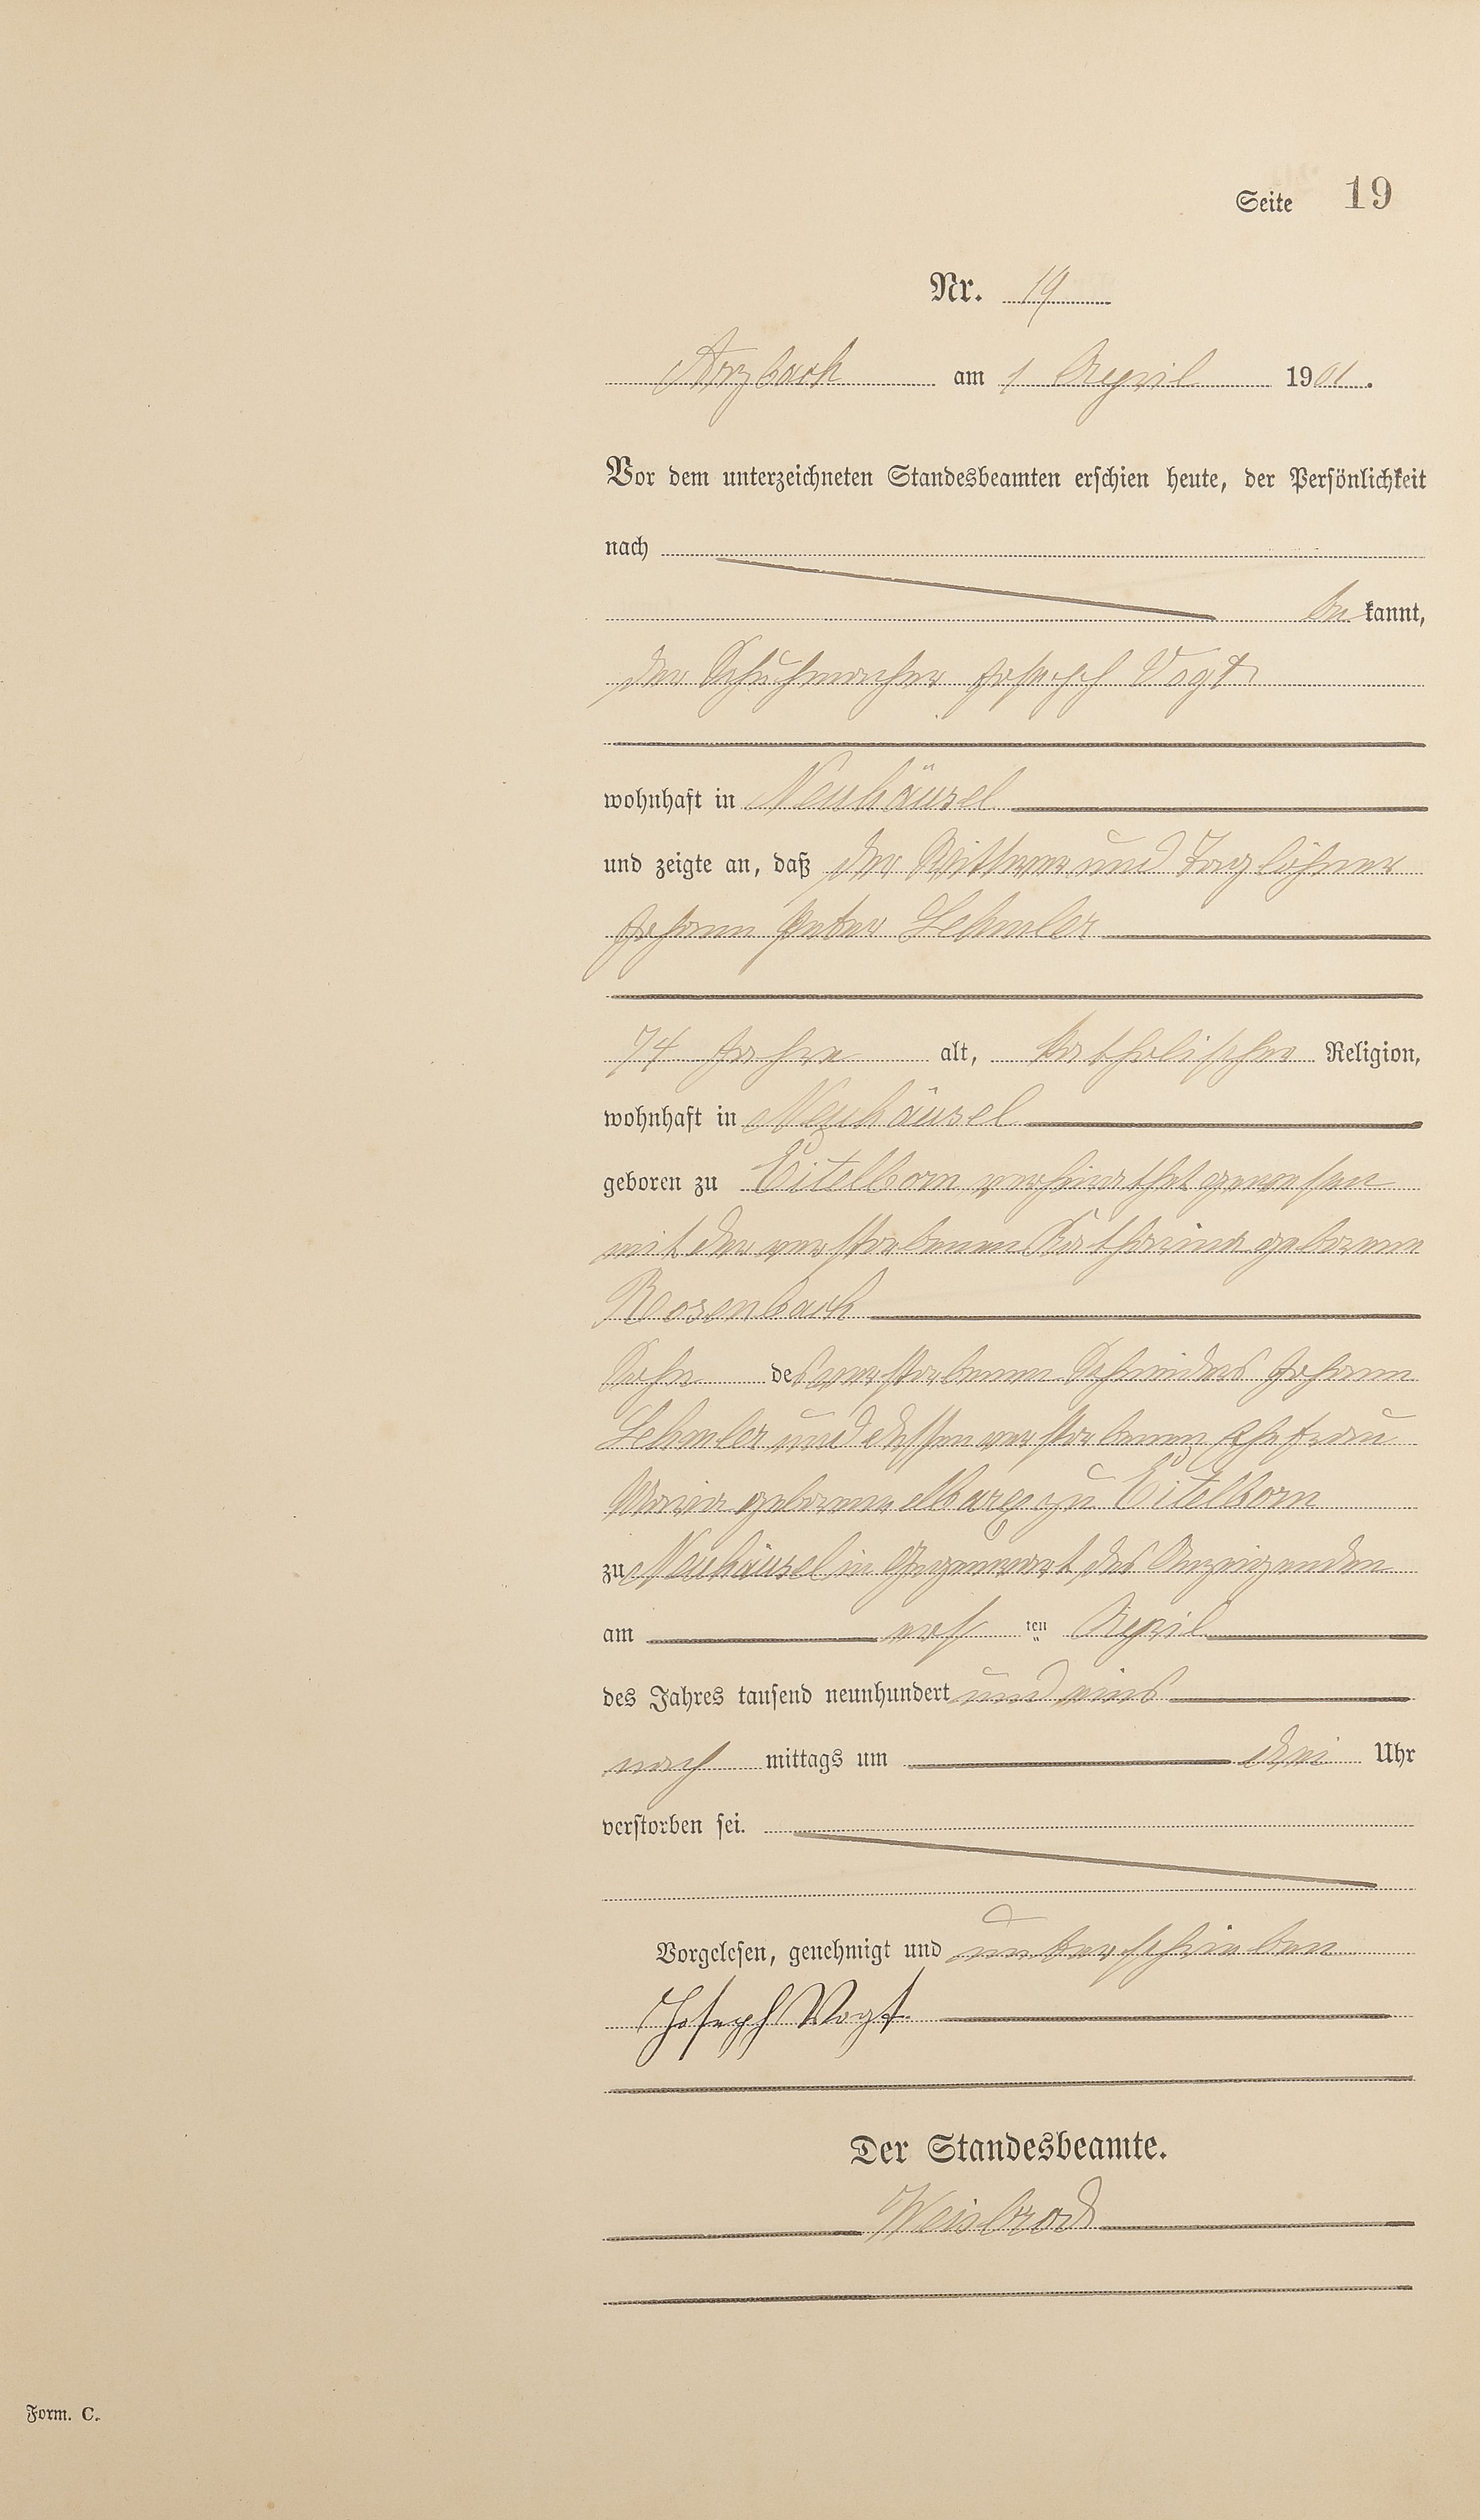 Seite 19
Nr. 19
Arzbach am 1 April 1901.
Vor dem unterzeichneten Standesbeamten erschien heute, der Persönlichkeit
nach
be kannt,
der Schuhmacher Joseph Vogt
wohnhaft in Neuhäusel
und zeigte an, daß der Wittwer und Taglöhner
Johann Peter Lehmler
74 Jahre alt, katholischer Religion,
wohnhaft in Neuhäusel
geboren zu Eitelborn verheirathet gewesen
mit der verstorbenen Katharina geborene
Rosenbach
Sohn des verstorbenen Johann
Lehmler und dessen verstorbenen Ehefrau
Maria geborene zu Eitelborn
zu Neuhäusel in Gegenwart des Anzeigenden
am ersten April
des Jahres tausend neunhundert und eins
nach mittags um drei Uhr
verstorben sei.
Vorgelesen, genehmigt und unterschrieben
Joseph Vogt
Der Standesbeamte.
Weisbrod
Form. C.